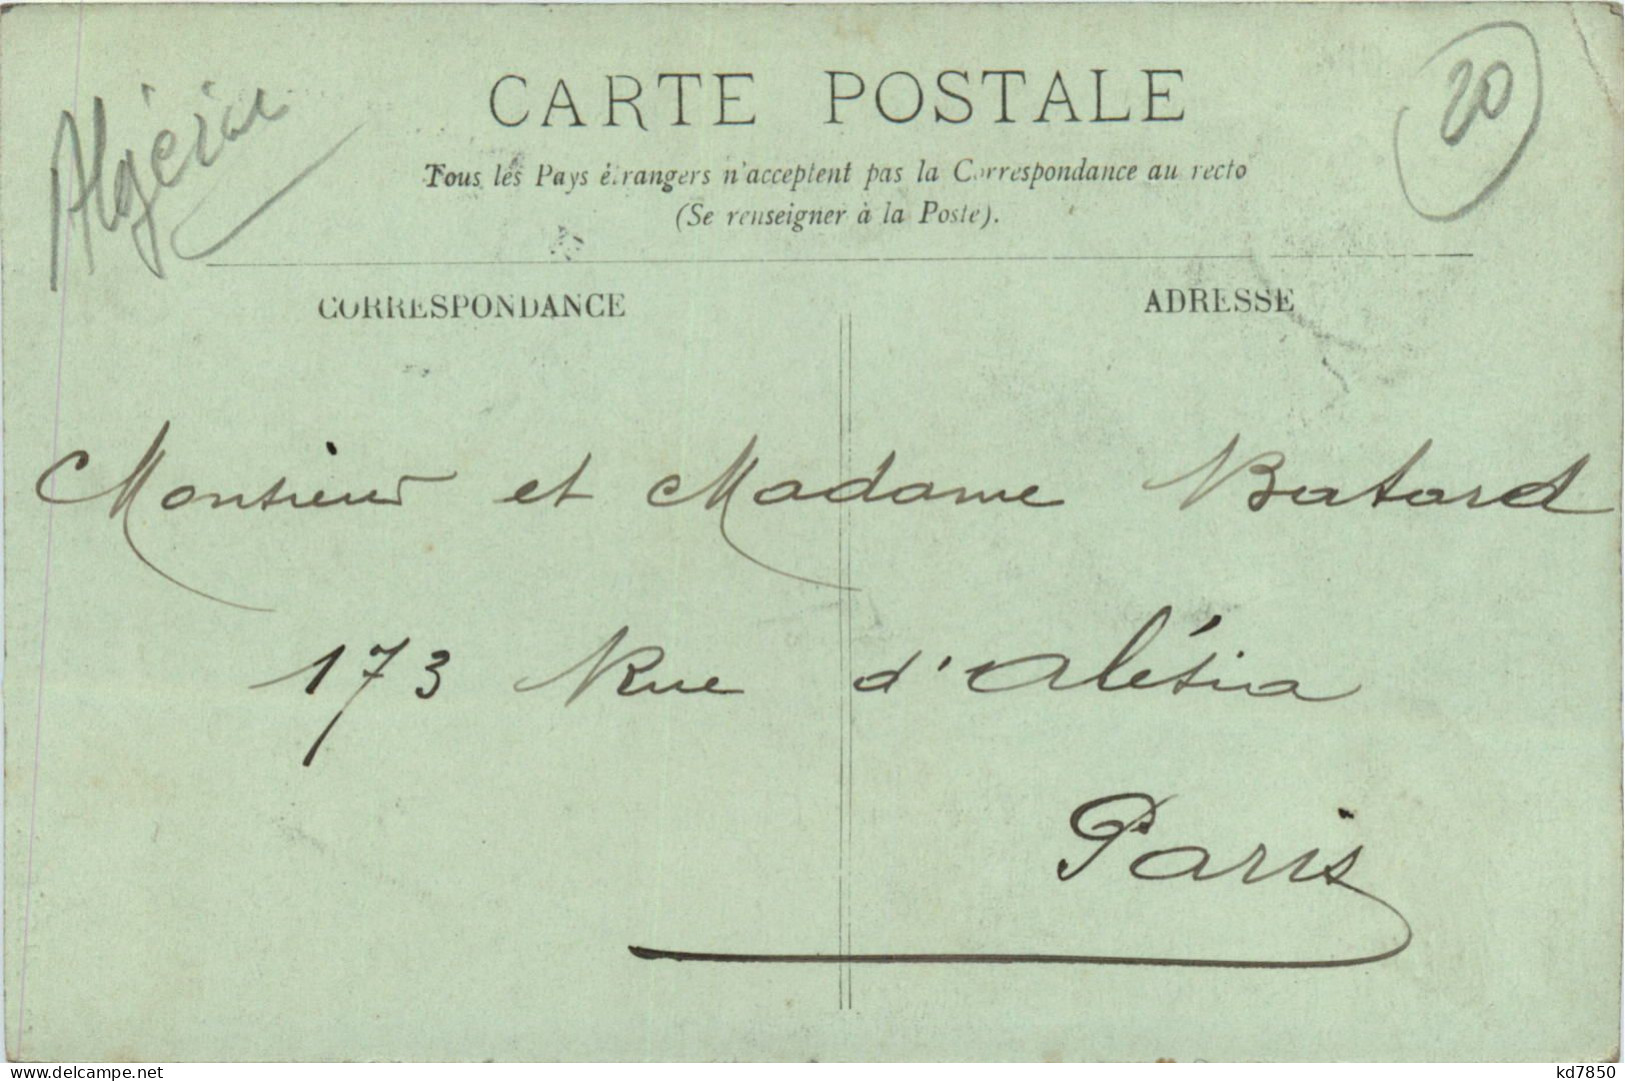 Algérie
20
CARTE POSTALE
Tous les Pays étrangers n'acceptent pas la Correspondance au recto
(Se renseigner à la Poste).
CORRESPONDANCE
ADRESSE
Monsieur et Madame Batard
173 Rue d'Alésia
Paris
delcampe.net
kd7850